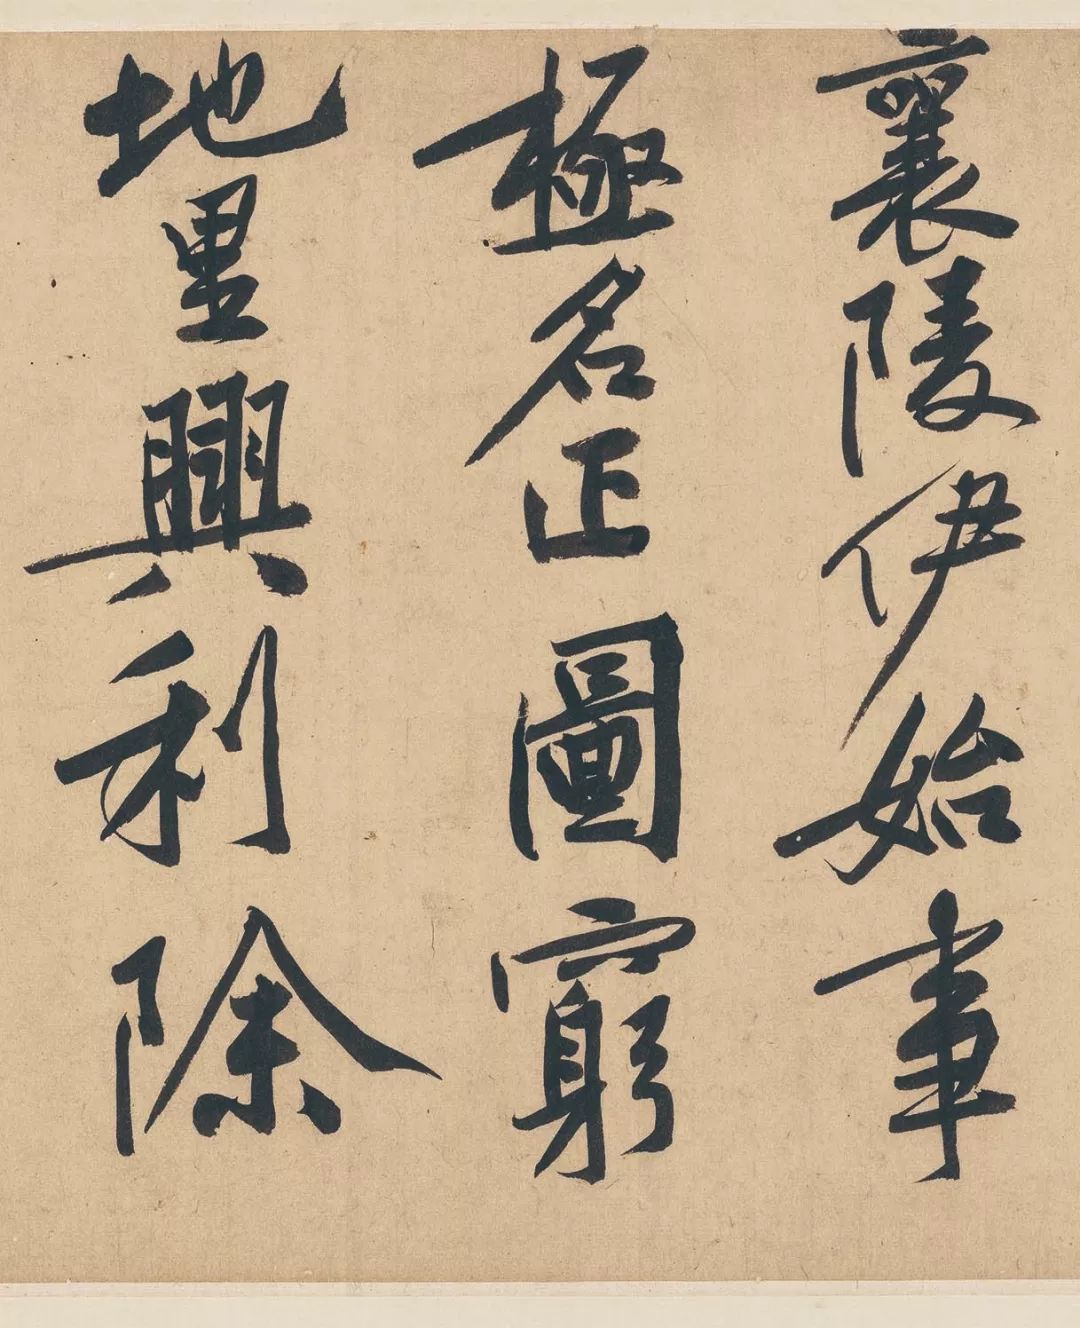 襄陵伊始事
極名正圖窮
地里興利除